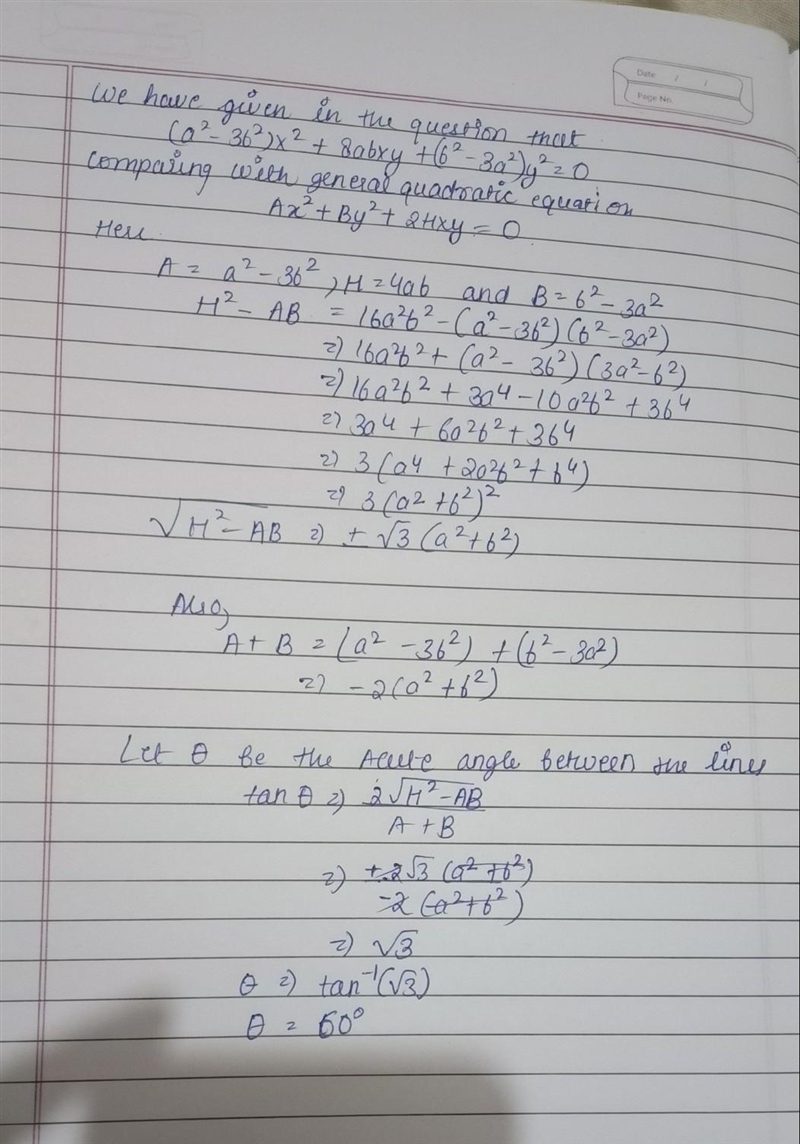 Date / /
Page No.
We have given in the question that
(a² - 3b²)x² + 8abxy + (b² - 3a²)y² = 0
comparing with general quadratic equation
Ax² + By² + 2Hxy = 0
Here
A = a² - 3b², H = 4ab and B = b² - 3a²
H² - AB = 16a²b² - (a² - 3b²)(b² - 3a²)
=) 16a²b² + (a² - 3b²)(3a² - b²)
=) 16a²b² + 3a⁴ - 10a²b² + 3b⁴
=) 3a⁴ + 6a²b² + 3b⁴
=) 3(a⁴ + 2a²b² + b⁴)
=) 3(a² + b²)²
√H² - AB =) ± √3 (a² + b²)
Also,
A + B = (a² - 3b²) + (b² - 3a²)
=) -2(a² + b²)
Let θ be the Acute angle between the lines
tan θ =) 2√H² - AB
A + B
=) ± 2√3 (a² + b²)
-2 (a² + b²)
=) √3
θ =) tan⁻¹(√3)
θ = 60°